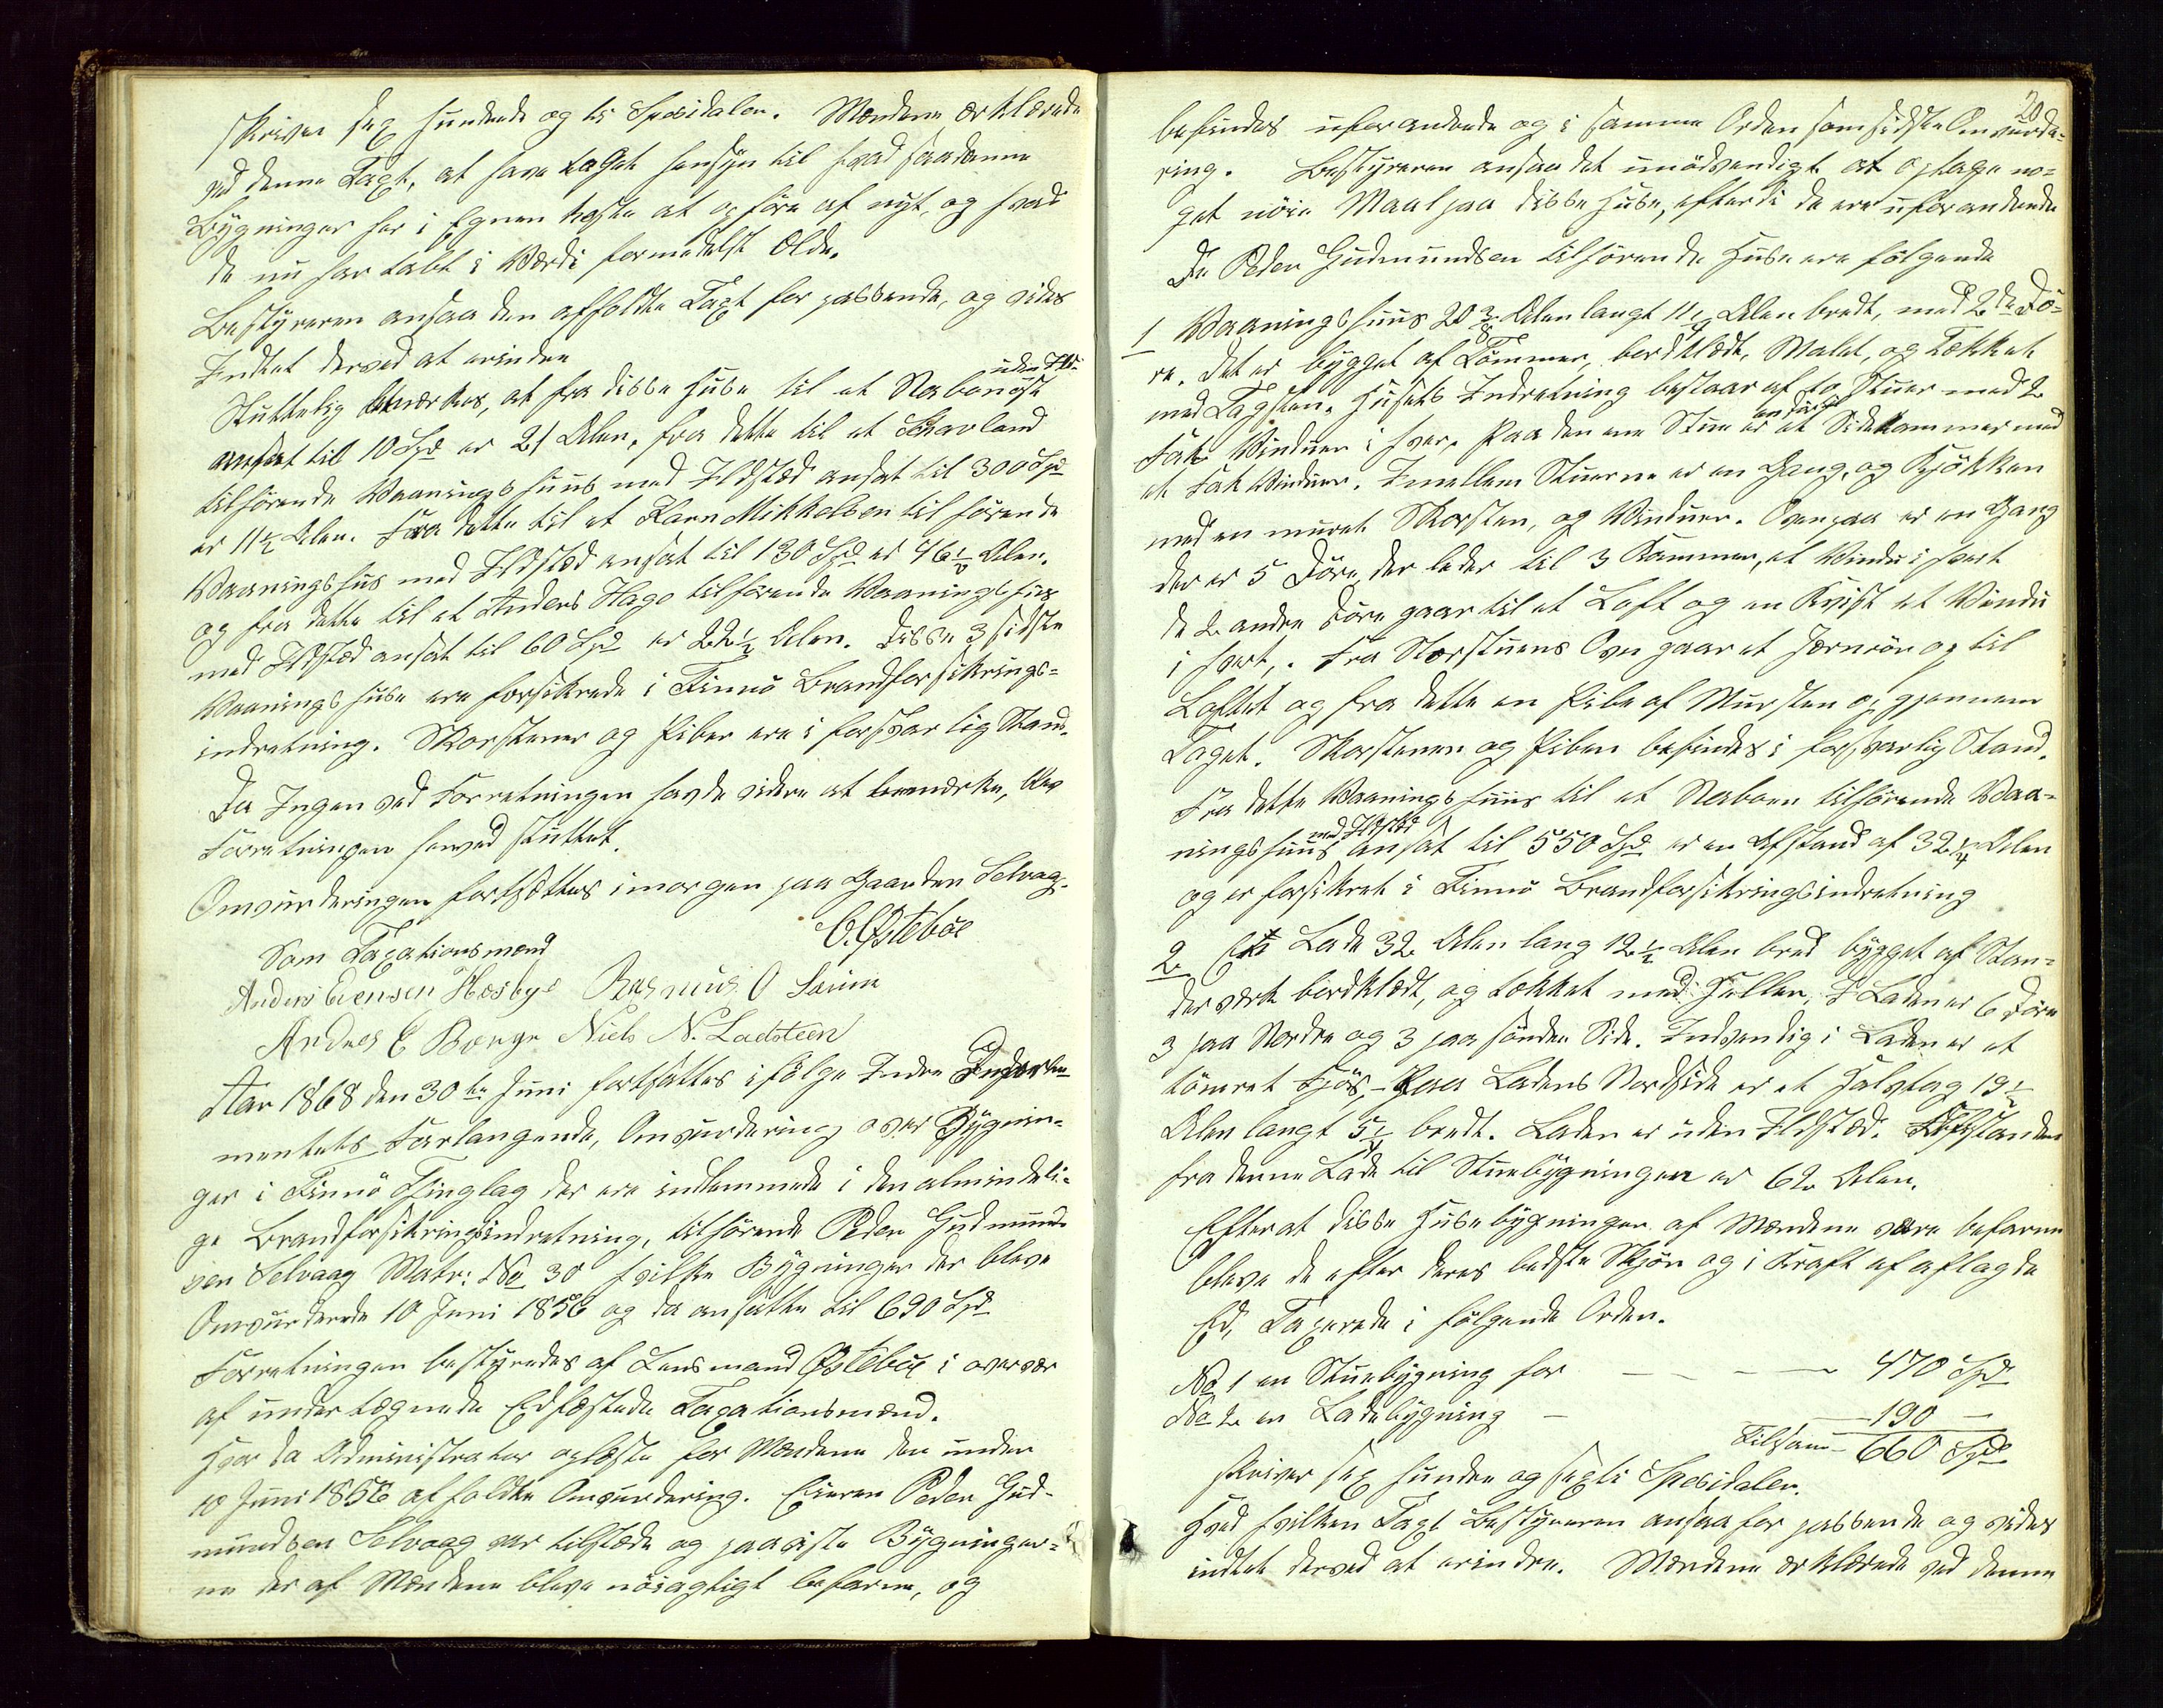 skriver sex hundrede og ti Specidaler. Mændene erklærede
ved denne Taxt, at have taget hensyn til hvad saadanne
Bygninger her i Egnen koste at opføre af nyt, og hvad
de nu har tabt i Værdi formedelst Elde.
Bestyreren ansaa den affholdte Taxt for passende, og vides
Indtet derved at erindre
Sluttelig bemærkes, at fra disse Huse til et Nabo nøst uden Ild-
ansat til 10 Spd er 21 Alen, fra dette til et
tilhørende Vaaningshuus med Ildsted ansat til 300 Spd
er 11½ Alen. Fra dette til et Karn Mikkelsen tilhørende
Vaaningshus med Ildsted ansat til 130 Spd er 46½ Alen.
og fra dette til et Anders Hage tilhørende Vaaningshus
med Ildsted ansat til 60 Spd er 22½ Alen. Disse 3 sidste
Vaaningshuse ere forsikrede i Finnø Brandforsikrings-
indretning. Skorstener og Piber ere i forsvarlig Stand.
Da Ingen ved Forretningen havde videre at bemærke, blev
Forretningen herved sluttet.
Omvurderingen fortsættes i morgen paa Gaarden Selvaag.
O. Østebøe
Som Taxationsmænd
Anders Evensen Hæsbye Rasmus O
Andres E Berge Niels N. Ladsteen
Aar 1868 den 30te Juni fortsattes ifølge Indre Departe-
mentets Forlangende, Omvurdering over Bygnin-
ger i Finnø Thinglag der ere indlemmede i den almindeli-
ge Brandforsikringsindretning, tilhørende Peder Gudmund-
sen Selvaag Matr: No 30 hvilke Bygninger der bleve
Omvurderede 10 Juni 1856 og da ansatte til 690 Spd
Forretningen bestyredes af Lensmand Østebøe i overvær
af undertegnede Edfæstede Taxationsmænd.
Hvor da Administrator oplæste for Mændene den under
10 Juni 1856 afholdte Omvurdering. Eieren Peder Gud-
mundsen Selvaag var tilstede og paaviste Bygninger-
ne der af Mændene bleve nøiagtigt befarne, og
20
befindes uforandrede og i samme Orden som sidste Omvurde-
ring. Bestyreren ansaa det unødvendigt at optage no-
get nøie Maal paa disse Huse, efterdi de ere uforandrede
De Peder Gudmundsen tilhørende Huse ere følgende
1 Vaaningshuus 20¾ Alen langt 11¼ Alen bredt, med 2de Dø-
re. Det er bygget af Tømmer, bordklædt, Malet, og Tækket
med Tagsten. Husets Indretning bestaar af to Stuer med 2
Fak Vinduer i hver. Paa den ene Stue er et Sidekammer med en Dør
et Fak Vinduer. Imellem Stuerne er en Gang, og Kjøkken
med en muret Skorsten, og Vinduer. Ovenpaa er en Gang
der er 5 Døre, der leder til 3 Kammer, et Vindu i hvert
de 2 andre Døre gaar til et Loft og en Kvist et Vindu
i hvert,. Fra Storstuens Ovn gaar et Jernrør op til
Loftet og fra dette en Pibe af Mursten op gjennem
Taget. Skorstenen og Piben befindes i forsvarlig Stand.
Fra dette Vaaningshuus til et Naboen tilhørende Vaa-
ningshuus med Ildsted ansat til 550 Spd er en Afstand af 32¼ Alen
og er forsikret i Finnø Brandforsikringsindretning
2 En Lade 32 Alen lang 12½ Alen bred bygget af Stan-
derværk bordklædt, og tækket med Heller, I Laden er 6 Døre
3 paa Nordre og 3 paa søndre Side. Indvendig i Laden er et
tømret Fjøs, - Paa Ladens Nordside er et Halvtag 19½
Alen langt 5¼ bredt. Laden er uden Ildsted. Afstanden
fra denne Lade til Stuebygningen er 62 Alen.
Efterat disse Husebygninger af Mændene vare befarne
bleve de efter deres bedste Skjøn og i Kraft af aflagde
Ed, Taxerede i følgende Orden.
No 1 en Stuebygning for — — — 470 Spd
No 2 en Ladebygning — — 190 —
Tilsam — 660 Spd
skriver sex hundre og sexti Specidaler.
Hved hvilken Taxt Bestyreren ansaa for passende og vides
indtet derved at erindre. Mændene erklærede ved denne